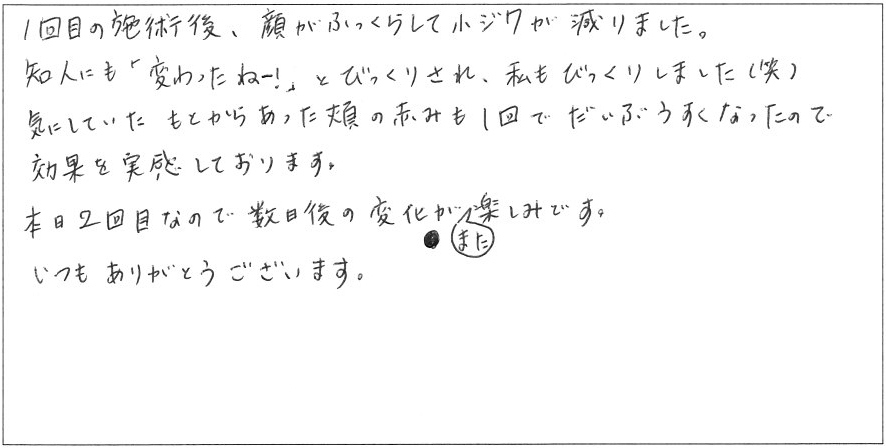 1回目の施術後、顔がふっくらして小ジワが減りました。
知人にも「変わったねー!」とびっくりされ、私もびっくりしました(笑)
気にしていたもとからあった頬の赤みも1回でだいぶうすくなったので
効果を実感しております。
本日2回目なので数日後の変化がまた楽しみです。
いつもありがとうございます。